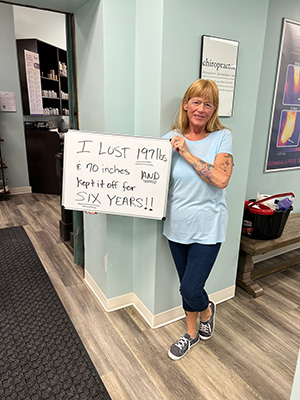 chiropract
I LOST 197 lbs
& 70 inches AND
kept it off for
SIX YEARS!!